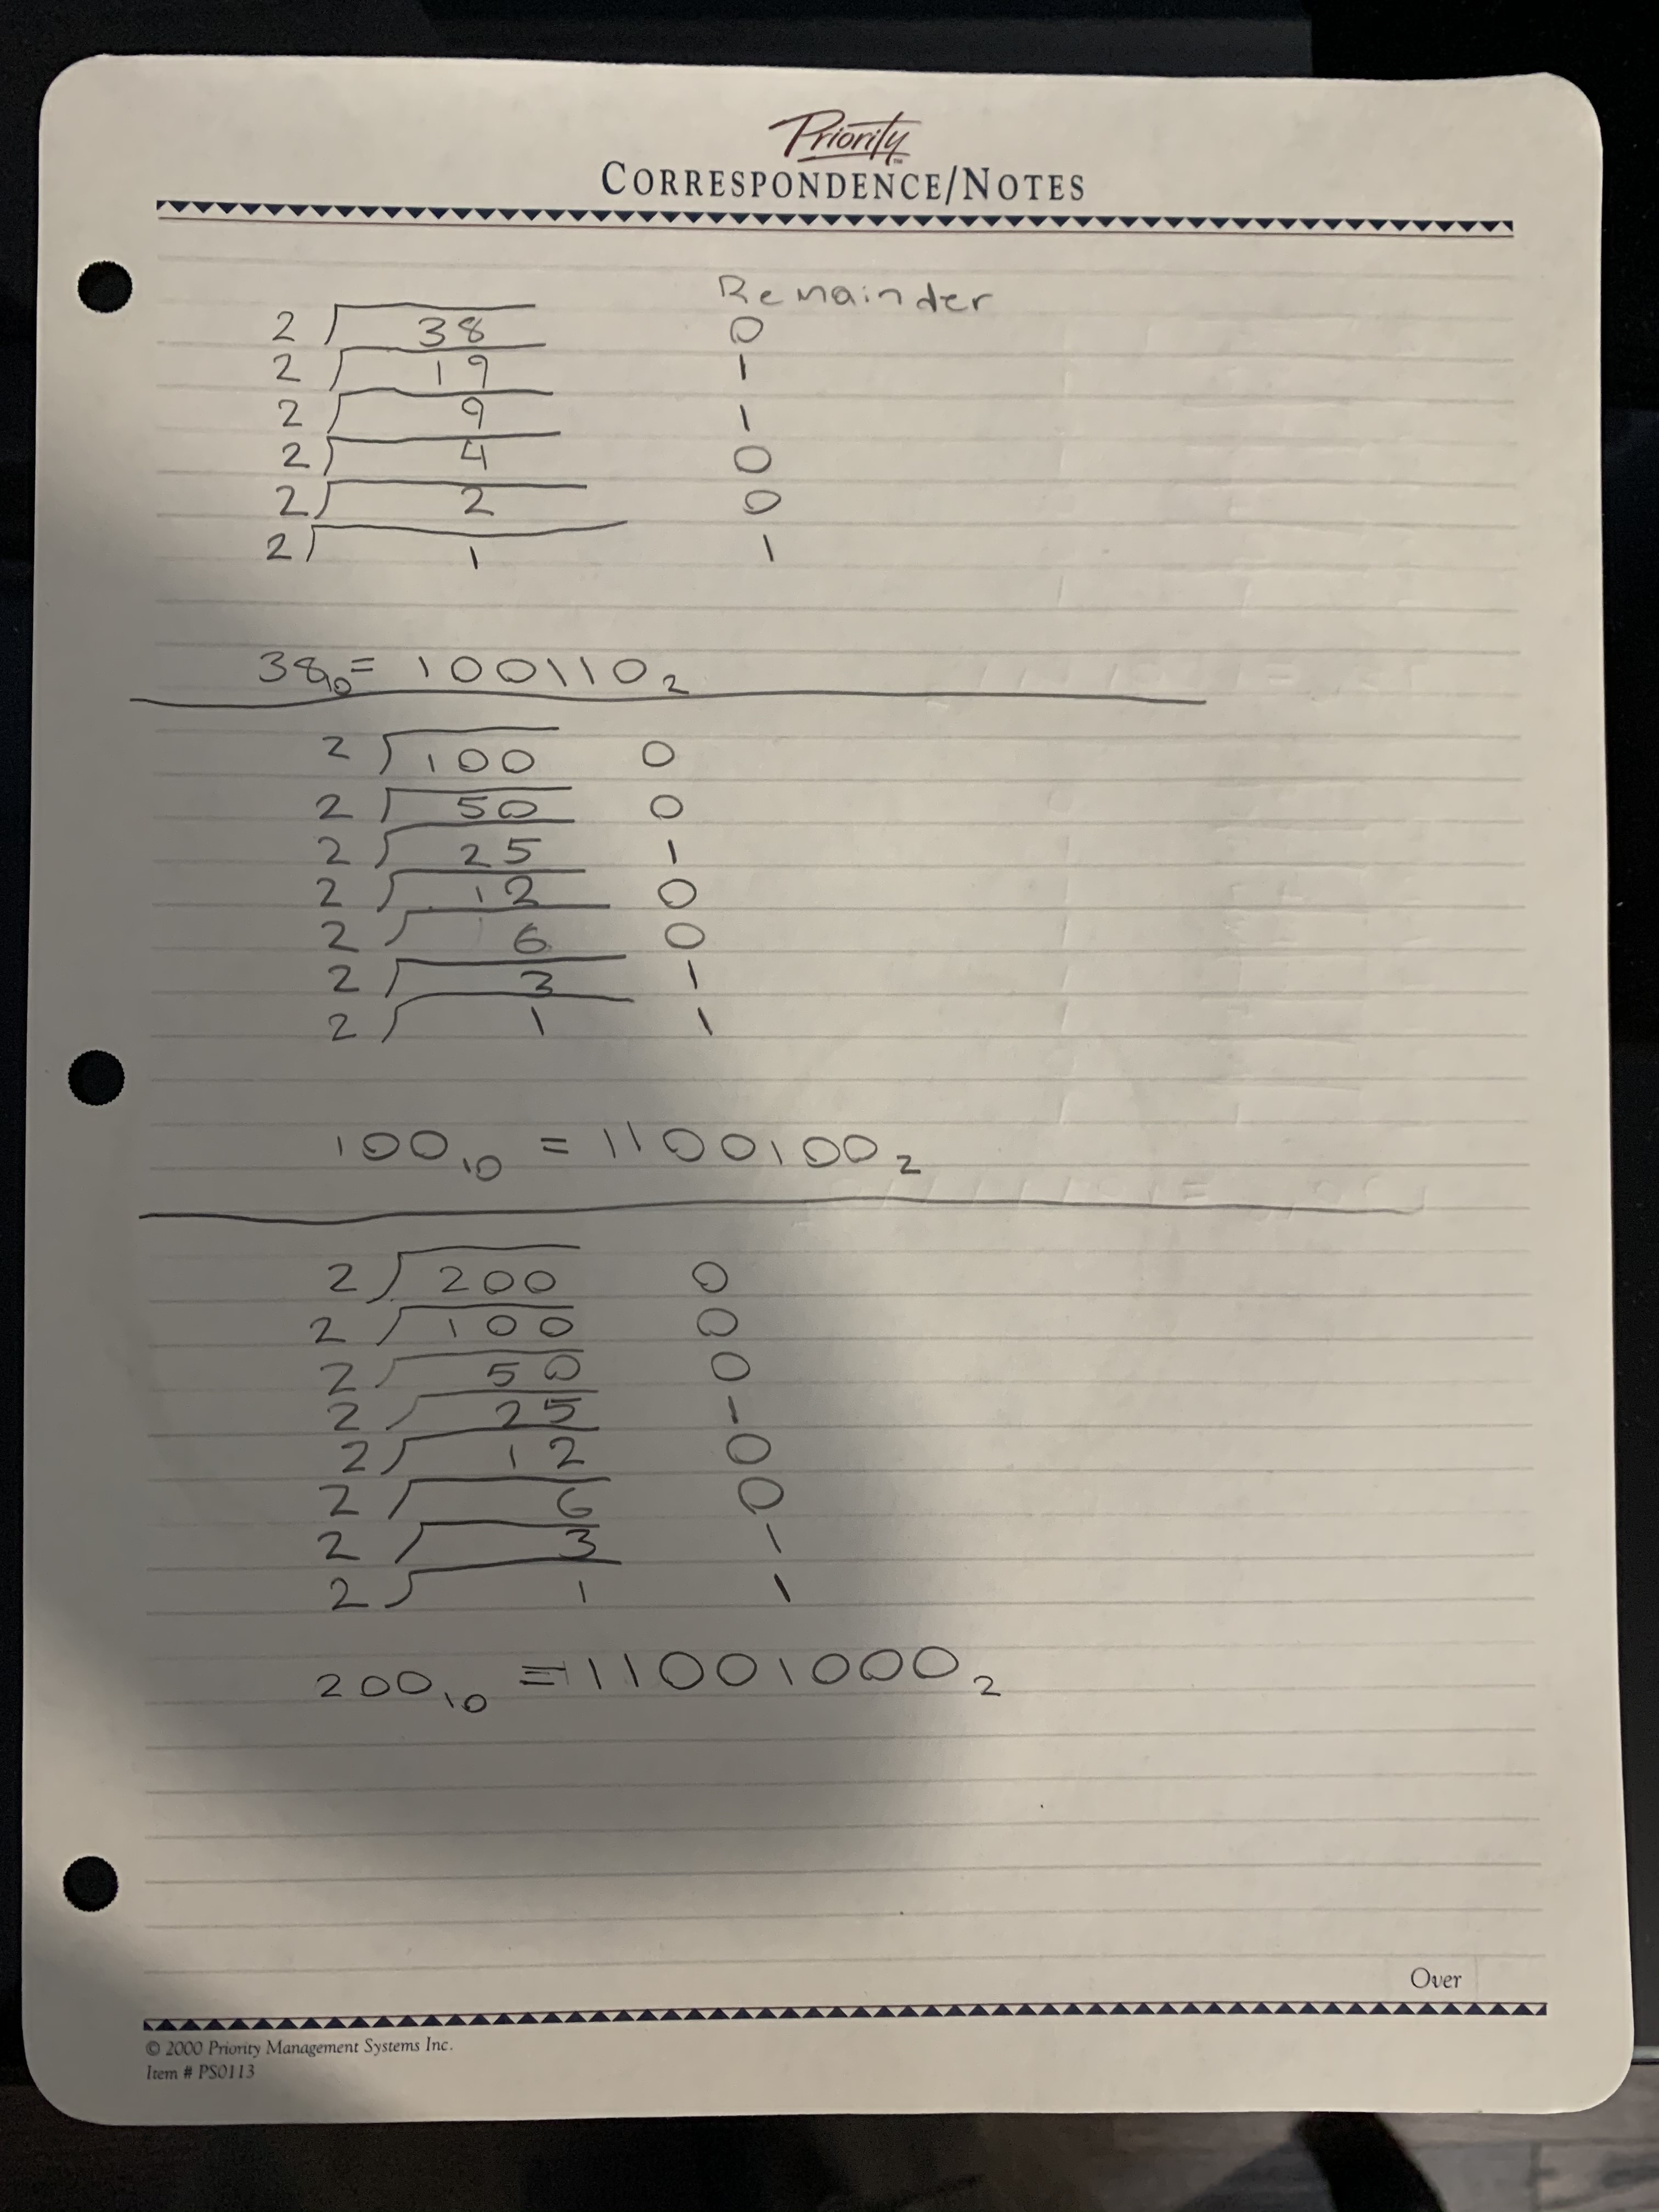 Priority™
CORRESPONDENCE/NOTES
Remainder
2 38 0
2 19 1
2 9 1
2 4 0
2 2 0
2 1 1
38₁₀ = 100110₂
2 100 0
2 50 0
2 25 1
2 12 0
2 6 0
2 3 1
2 1 1
100₁₀ = 1100100₂
2 200 0
2 100 0
2 50 0
2 25 1
2 12 0
2 6 0
2 3 1
2 1 1
200₁₀ = 11001000₂
Over
© 2000 Priority Management Systems Inc.
Item # PS0113